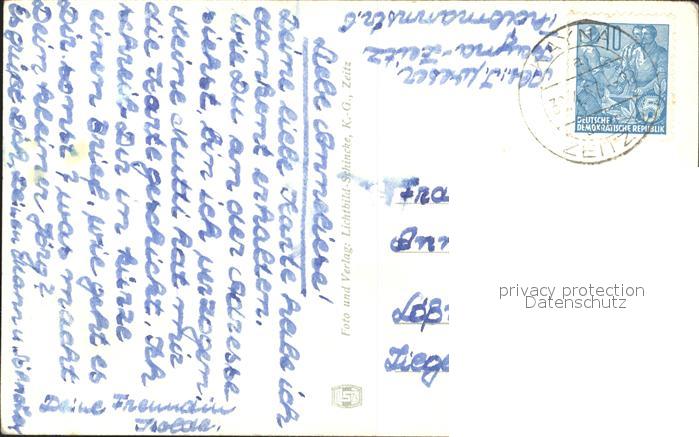 Liebe Anneliese!
Deine liebe Karte habe ich
dankend erhalten.
Wie Du an der Adresse
siehst, bin ich verzogen
meine Mutti hat mir
die Karte geschickt. Ich
schreib Dir in Kürze
einen Brief, wie geht es
Dir sonst? was macht
Dein kleiner Jörg?
Es grüßt Dich, Deinen Mann u. Söhnchen
Deine Freundin
Isolde.
Foto und Verlag: Lichtbild-Schincke, K.-G., Zeitz
Abs. J. Weser
Zeitz
Thälmannstr. 6
Fra
Ann
Löß
Liege
10
5
DEUTSCHE
DEMOKRATISCHE REPUBLIK
ZEITZ
privacy protection
Datenschutz